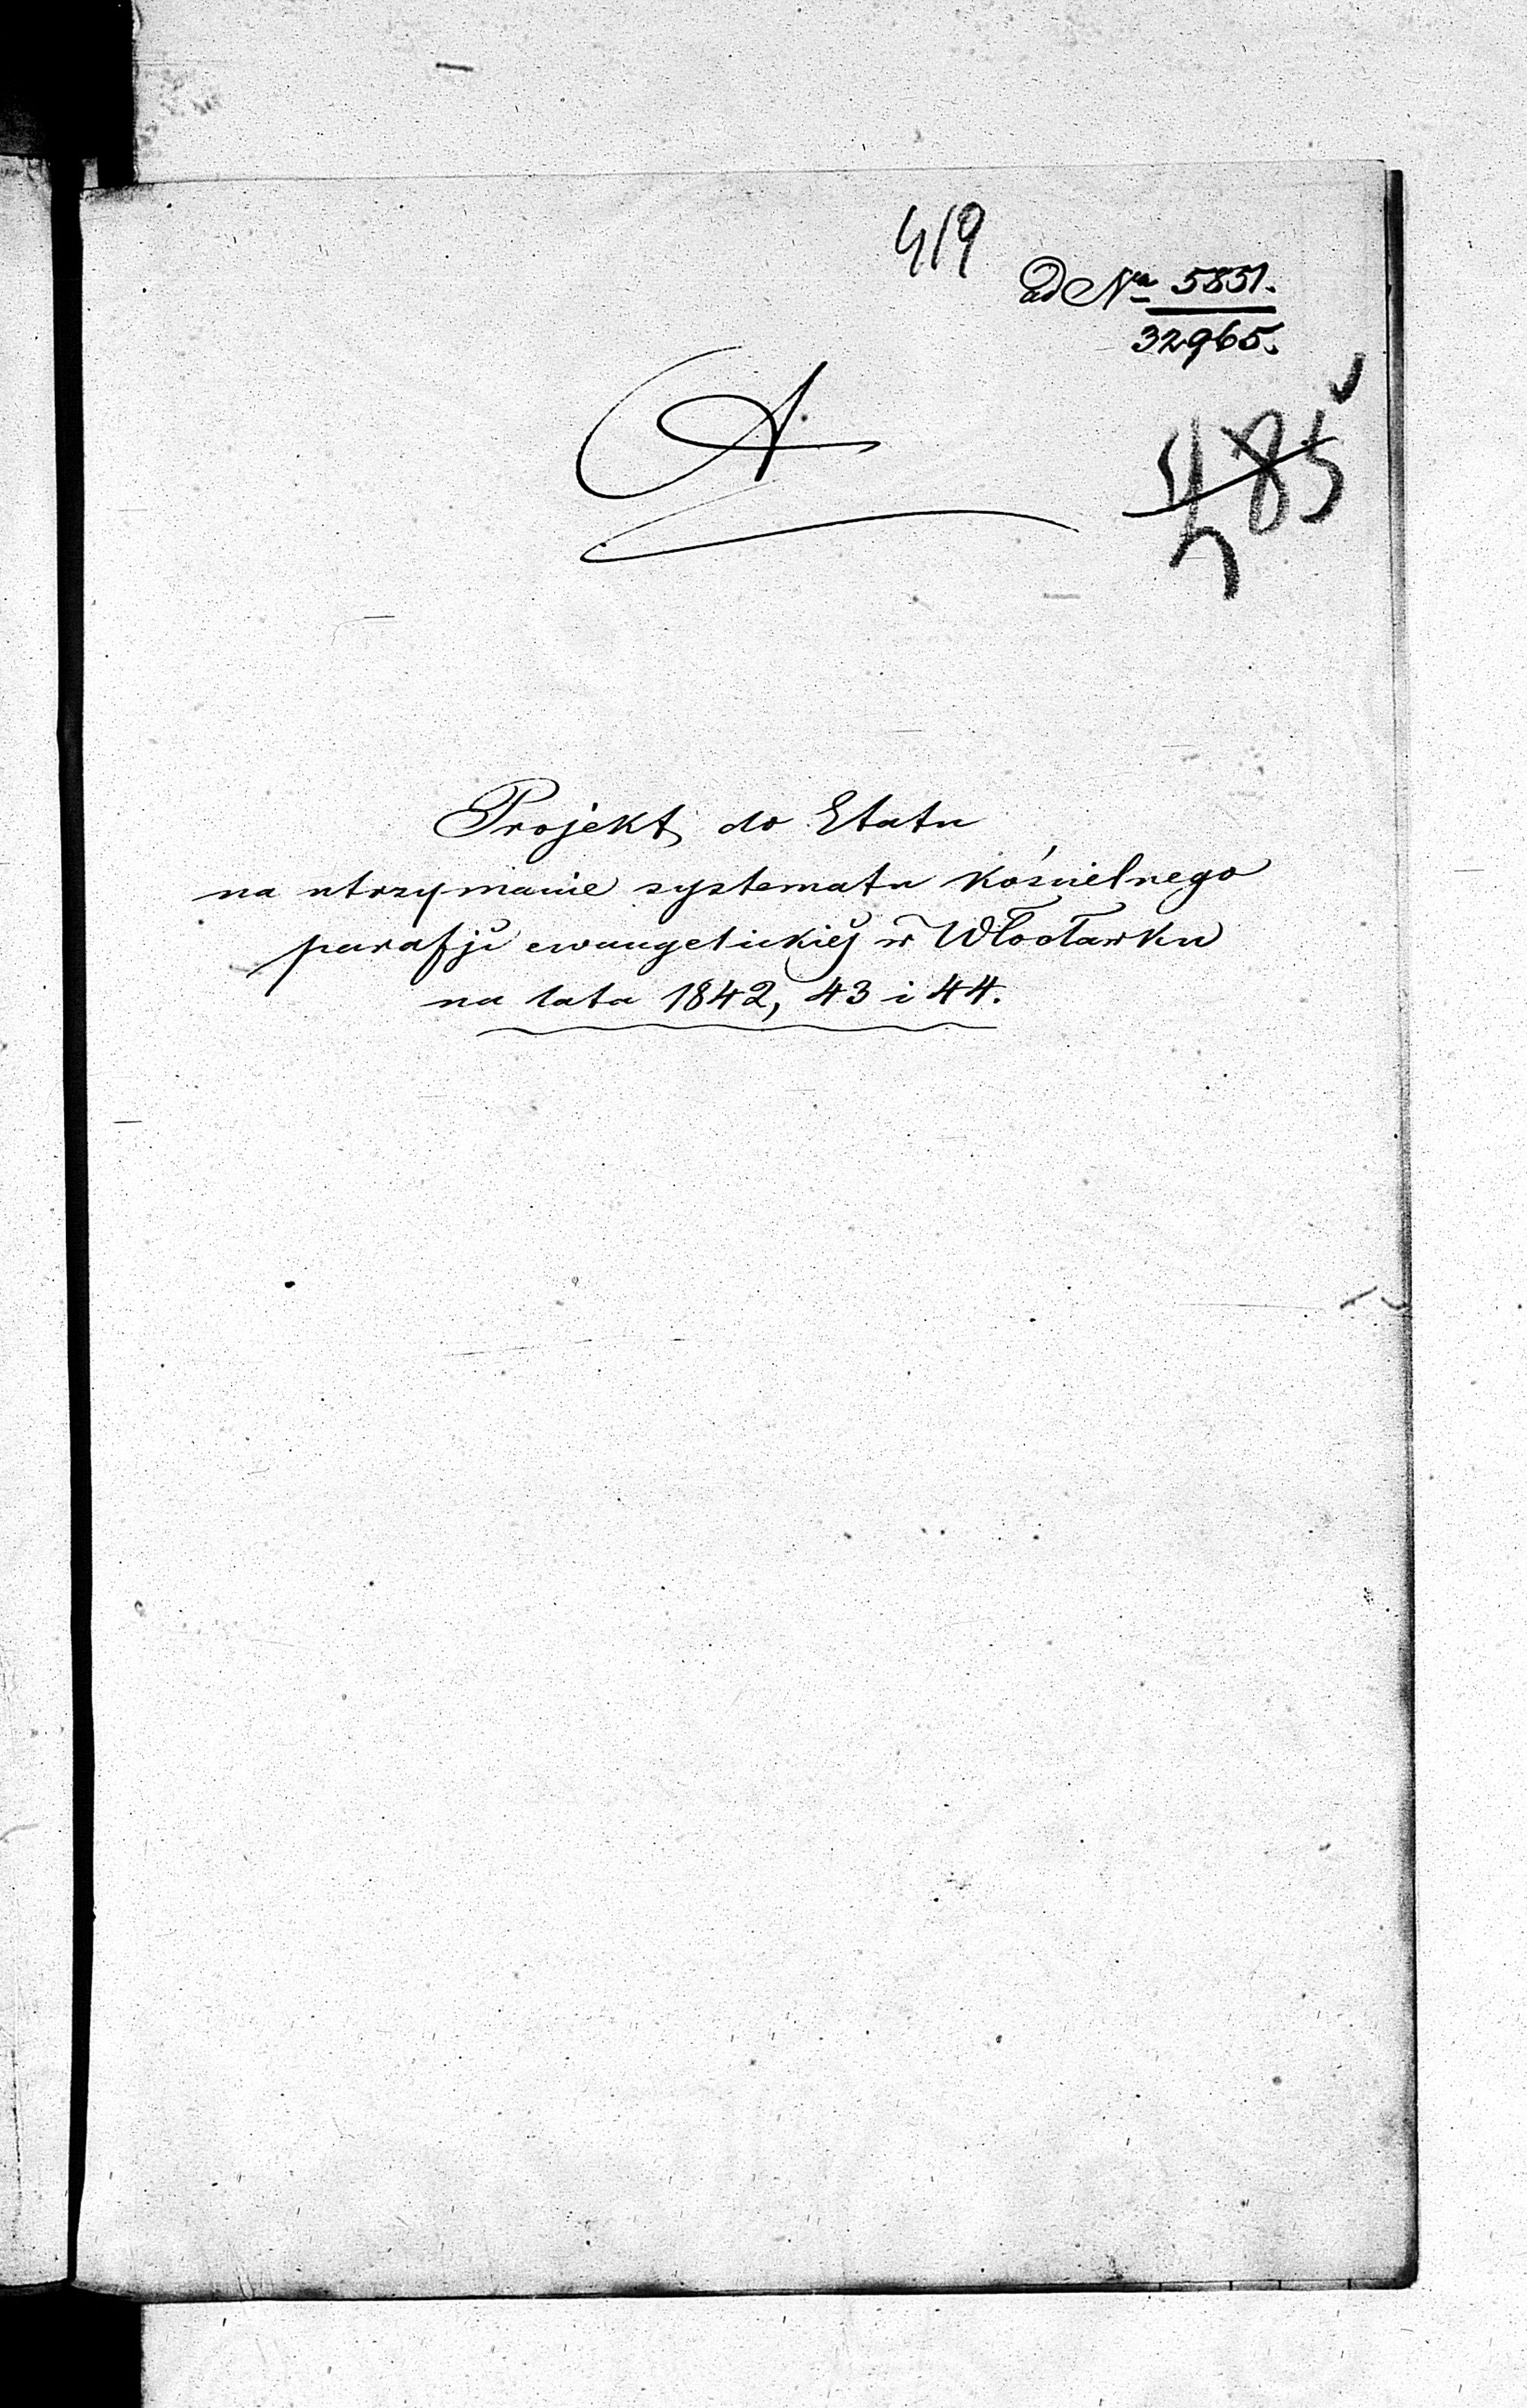 419
ad Nro 5851.
32965.
A.
485
Projekt do Etatu
na utrzymanie systematu kościelnego
parafji ewangelickiej w Włocławku
na lata 1842, 43 i 44.